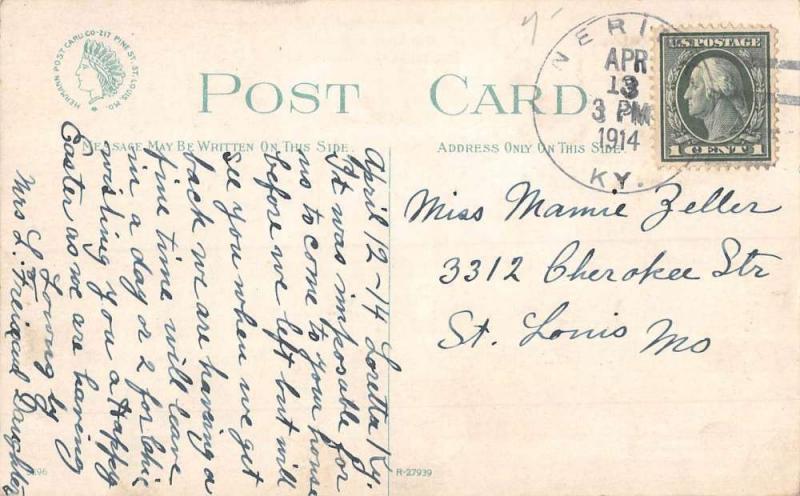 HERMANN POST CARD CO-217 PINE ST. ST. LOUIS MO.
POST CARD
MESSAGE MAY BE WRITTEN ON THIS SIDE.
ADDRESS ONLY ON THIS SIDE.
NERI
APR
13
3 PM
1914
KY.
U.S. POSTAGE
1 CENT 1
April 12-14 Loretta Ky.
It was imposable for
us to come to your house
before we left but will
see you when we get
back we are having a
fine time will leave
in a day or 2 for Chic
wishing you a Happy
Easter as we are having
Loving by
Mrs L. and Daughter
Miss Mamie Zeller
3312 Cherokee Str
St. Louis Mo
R-27939